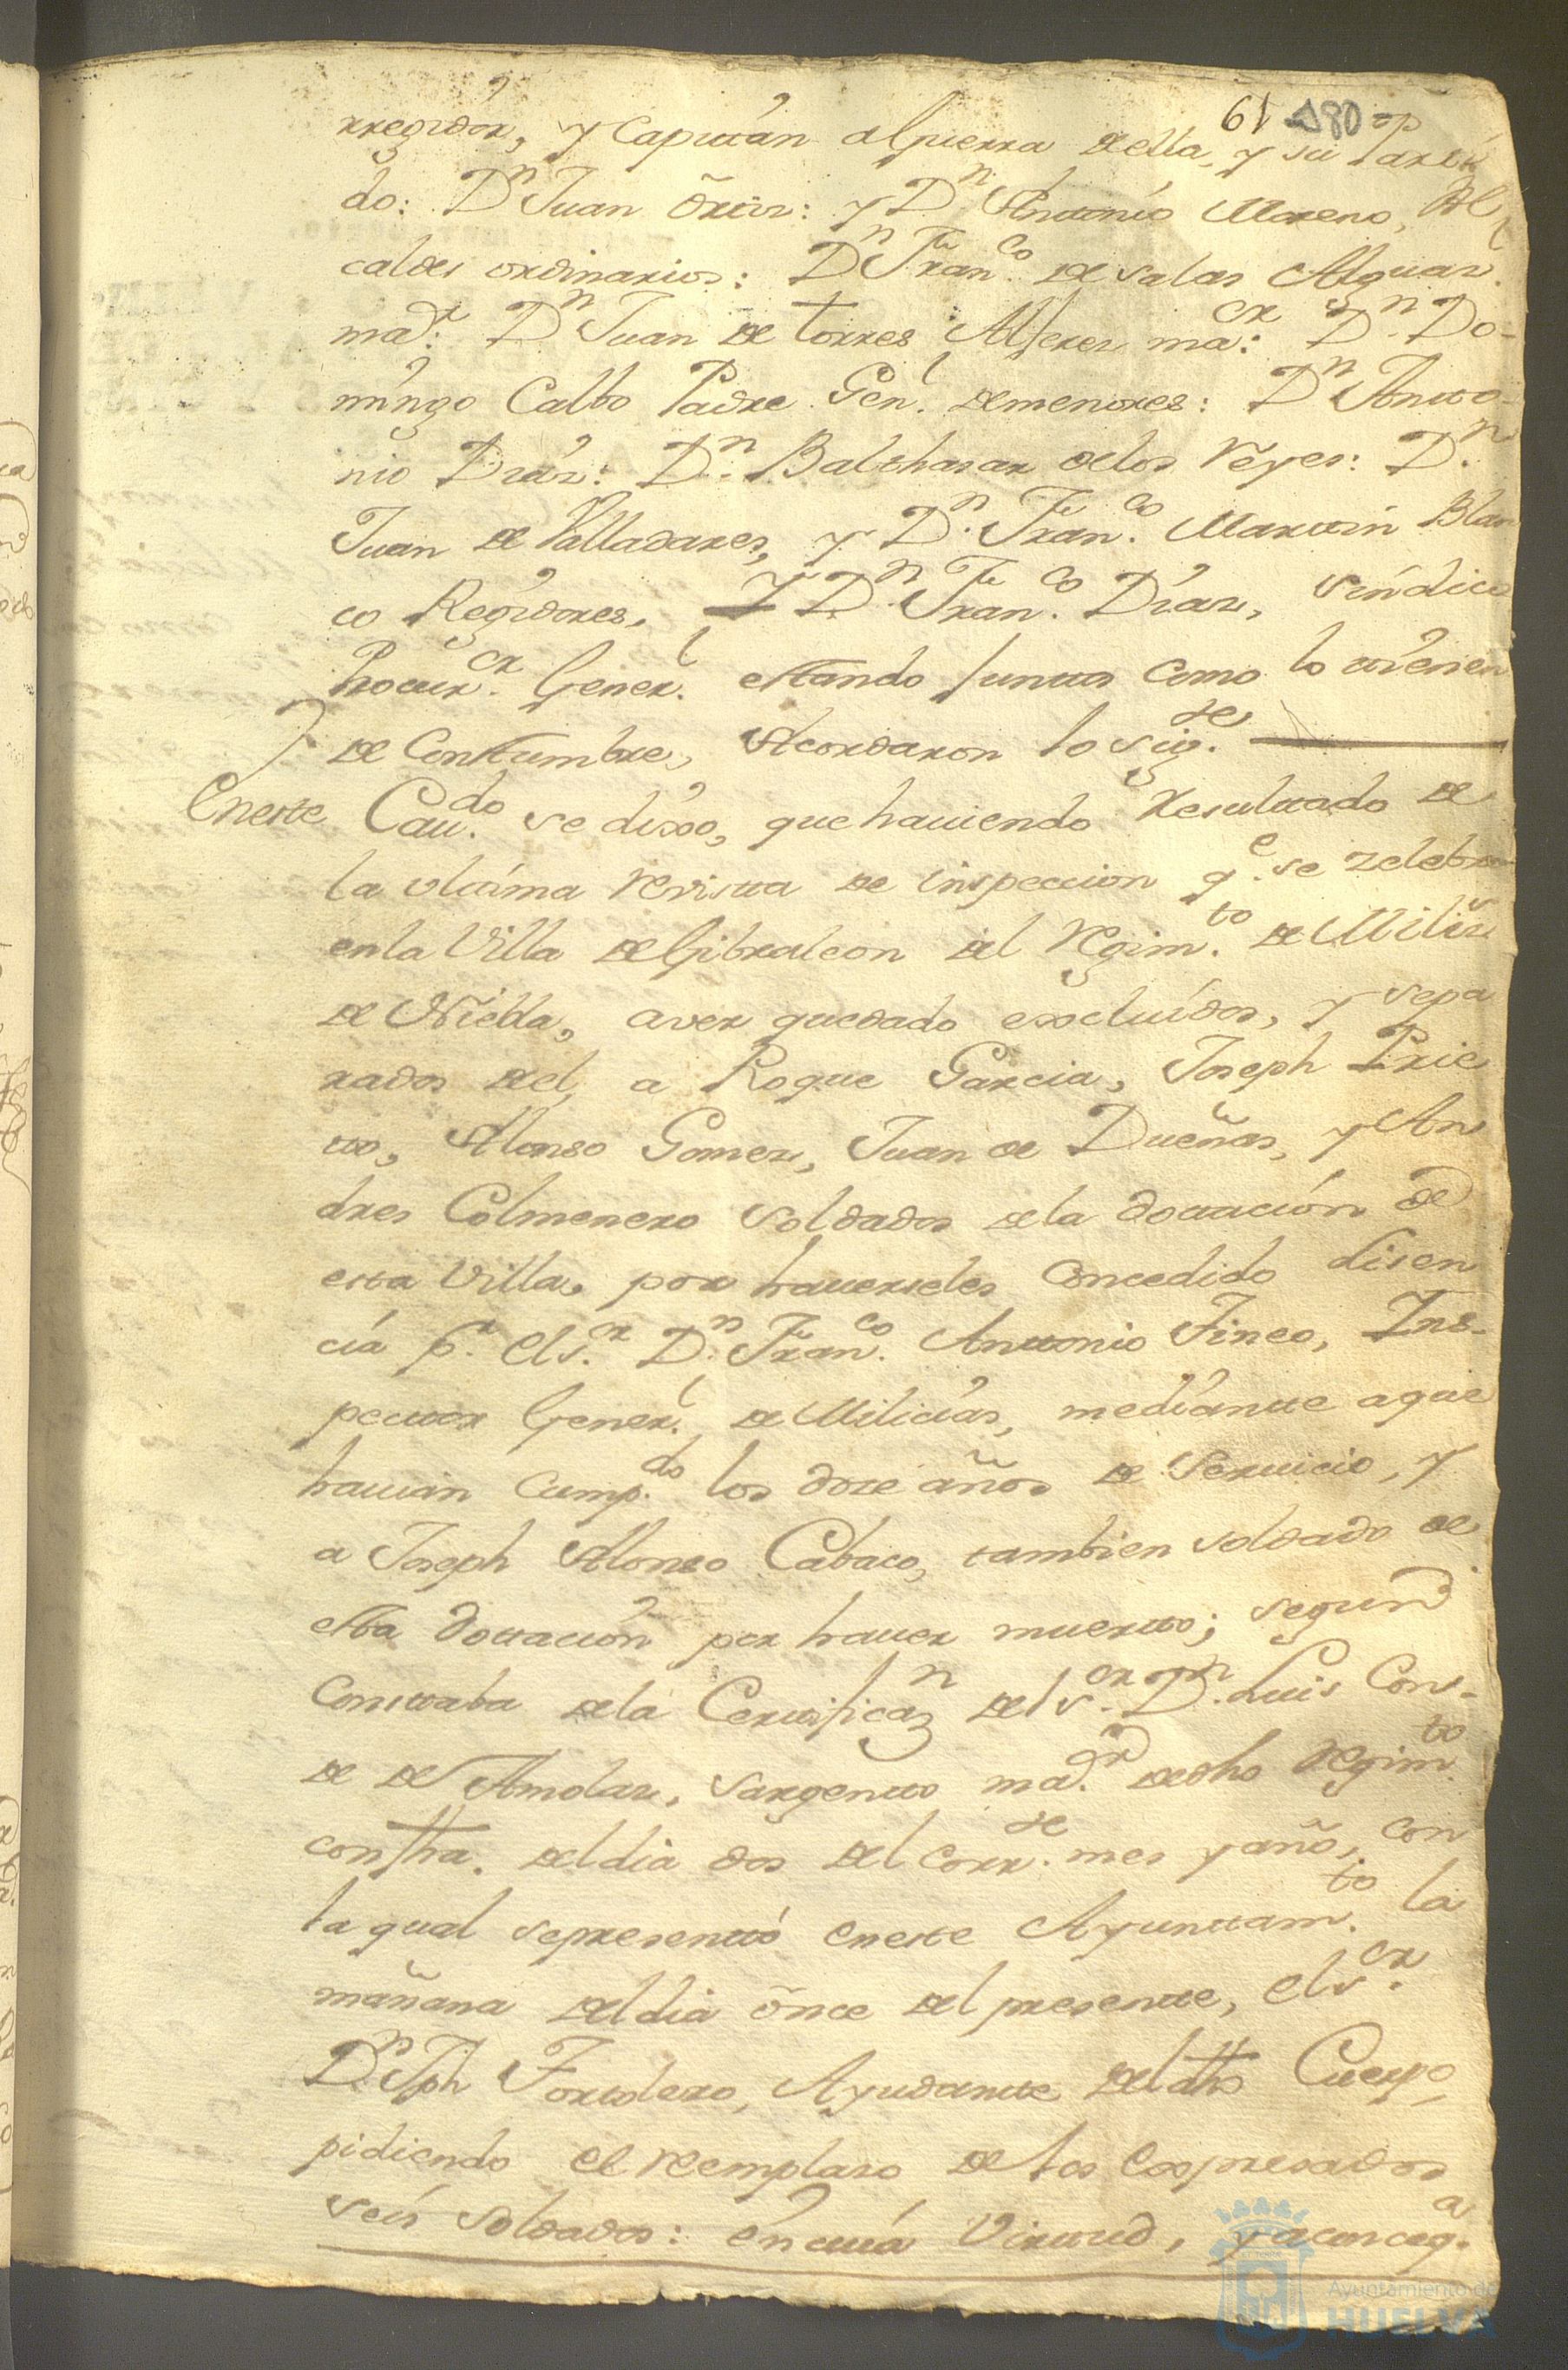 61 180
rregidor, y Capitán a Guerra della, y su Parti
do: Dn Juan Ortiz: y Dn Antonio Moreno, Al
caldes ordinarios: Dn Franco. de Salas Alguasl.
mar. Dn Juan de torres Alferes maor. Dn. Do-
mingo Calbo Padre Genl. de menores: Dn Anto-
nio Diaz: Dn. Balthasar de los Reyes: Dn.
Juan de Valladares, y Dn. Franco. Martin Blan
co Regidores. Y Dn. Franco. Diaz, Sindico
Procuror. Generl. estando juntos como lo tienen
de Constumbre, Acordaron lo sigte.
En este Cavdo. se dixo, que haviendo Resultado de
la ultima revista de inspeccion qe. se zelebro
en la Villa de Gibraleon del Regimto. de Miliz
de Niebla, aver quedado excluidos, y sepa
rados del, a Roque Garcia, Joseph Prie
to, Alonso Gomez, Juan de Dueñas, y An
dres Colmenero soldados de la dotación de
esta Villa, por haverseles Concedido lisen
cia pr. el Sor. Dn. Franco. Antonio Tineo, Ins-
pector Generl. de Milicias, mediante a que
havian Cumpdo. los doze años de Servicio, y
a Joseph Alonso Cabaco, tambien soldado de
esta dotación por haver muerto; segun
Constaba de la Certificazn del Sor. Dn. Luis Con-
de de Amolaz, Sargento maor. de dho Regimto.
con fha. del dia dos del Corrte. mes y año, con
la qual se presentó en este Ayuntamto. la
mañana del dia once del presente, el Sor.
Dn Jph Fortolero, Ayudante del dho Cuerpo,
pidiendo el reemplazo de los expresados
seis soldados: en cuia Virtud, y a conseqa.
Ayuntamiento de
HUELVA